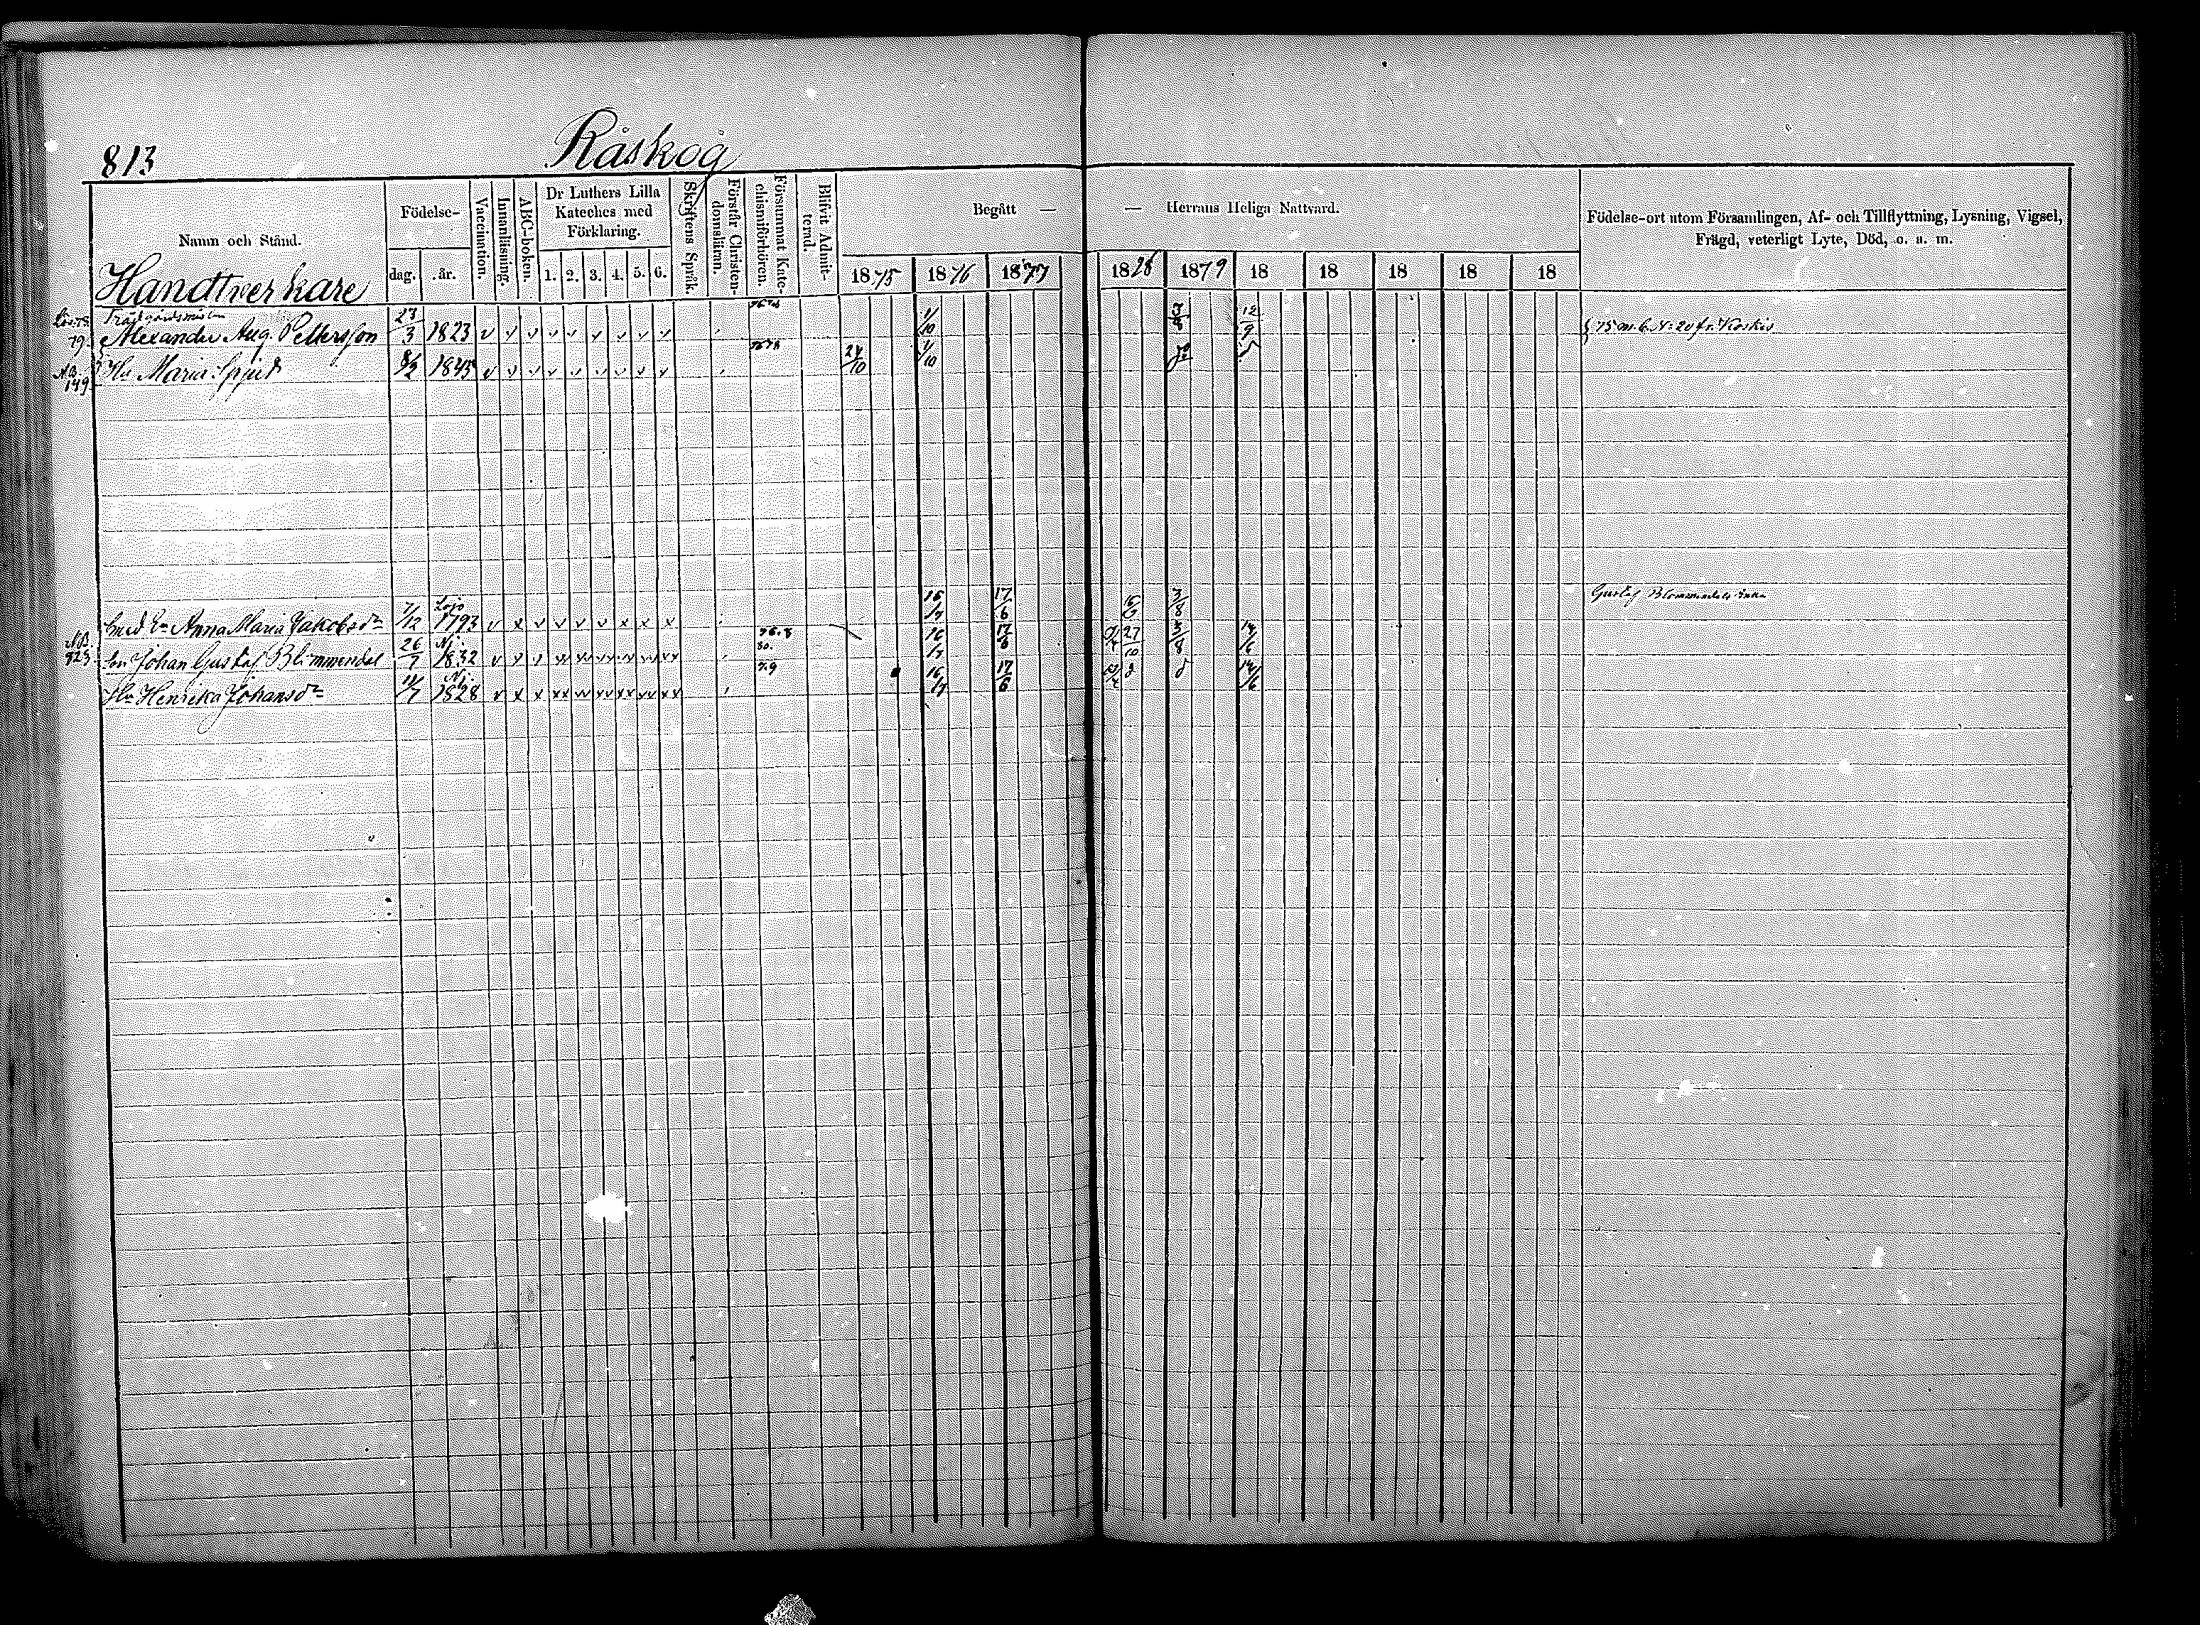 813
Råskog
Namn och Stånd.
Födelse-
dag. år.
Vaccination.
Innanläsning.
ABC-boken.
Dr Luthers Lilla
Kateches med
Förklaring.
1. 2. 3. 4. 5. 6.
Skriftens Språk.
Förstår Christen-
domsläran.
Försummat Kate-
chismiförhören.
Blifvit Admit-
terad.
Begått — — Herrans Heliga Nattvard.
1875 1876 1877 1878 1879 18 18 18 18 18
Födelse-ort utom Församlingen, Af- och Tillflyttning, Lysning, Vigsel,
Frägd, veterligt Lyte, Död, o. s. m.
Handtverkare
Alexander Aug. Pettersson 23/3 1823 v v v v v v v v v 1/10 12/9 75 m. b. N: 20 fr. Koskis
149 Hu Maria 1845 v v v v v v v v v 24/10 1/10
Lojo
Smed En Anna Maria Jakobsdr 7/12 1793 v x v v v v x x x 16/7 17/6 3/8 Gustaf Blommendals enka
923 Johan Gustaf Blommendal 26/7 1832 16/7 17/6 27/10 3/8 14/6
Hu Henrika Johansdr 11/7 1828 v x x xx 16/7 17/6 14/6